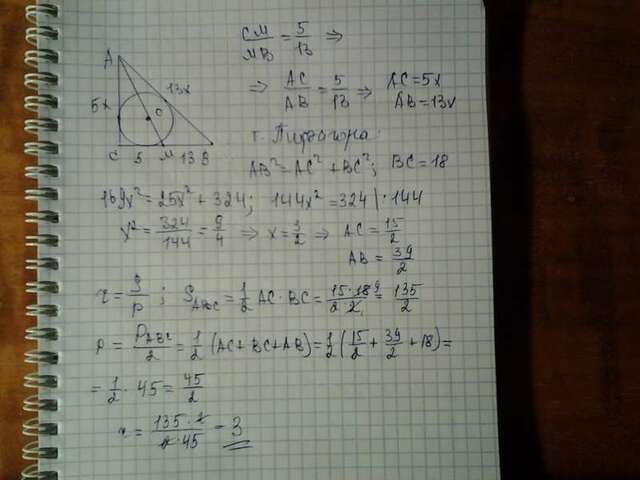 CM/MB = 5/13 ⇒
⇒ AC/AB = 5/13 ⇒ AC = 5x
AB = 13x
A
13x
5x
O
C 5 M 13 B
т. Пифагора:
AB² = AC² + BC²; BC = 18
169x² = 25x² + 324; 144x² = 324 | : 144
x² = 324/144 = 9/4 ⇒ x = 3/2 ⇒ AC = 15/2
AB = 39/2
r = S/p ; S ABC = 1/2 AC · BC = 15·18 9/2·2 = 135/2
p = P ABC/2 = 1/2 (AC + BC + AB) = 1/2 (15/2 + 39/2 + 18) =
= 1/2 · 45 = 45/2
r = 135·2/2·45 = 3